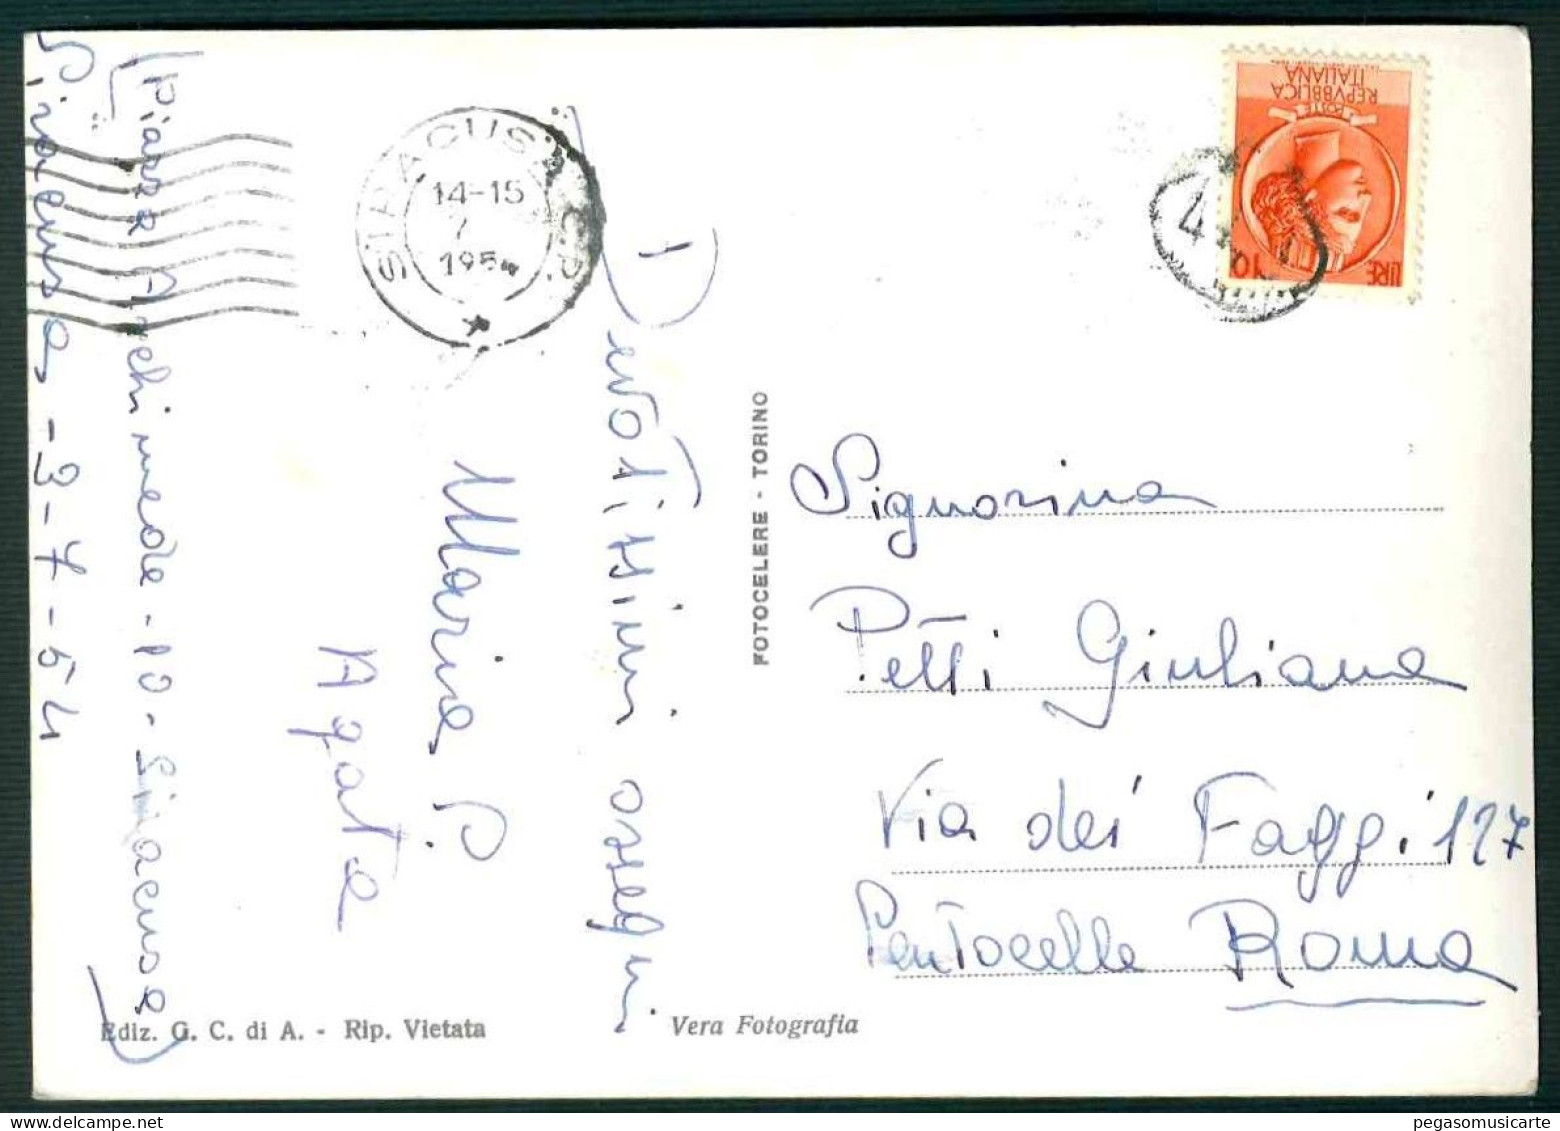 Siracusa - 3-7-54
(Piazza Archimede - 10 - Siracusa)
Devotissimi ossequi
Maria P.
Agata
SIRACUSA C.P.
14-15
7
195
POSTE
REPVBBLICA
ITALIANA
LIRE 10
FOTOCELERE - TORINO
Signorina
Petti Giuliana
Via dei Faggi 127
Centocelle Roma
Ediz. G. C. di A. - Rip. Vietata
Vera Fotografia
pegasomusicarte